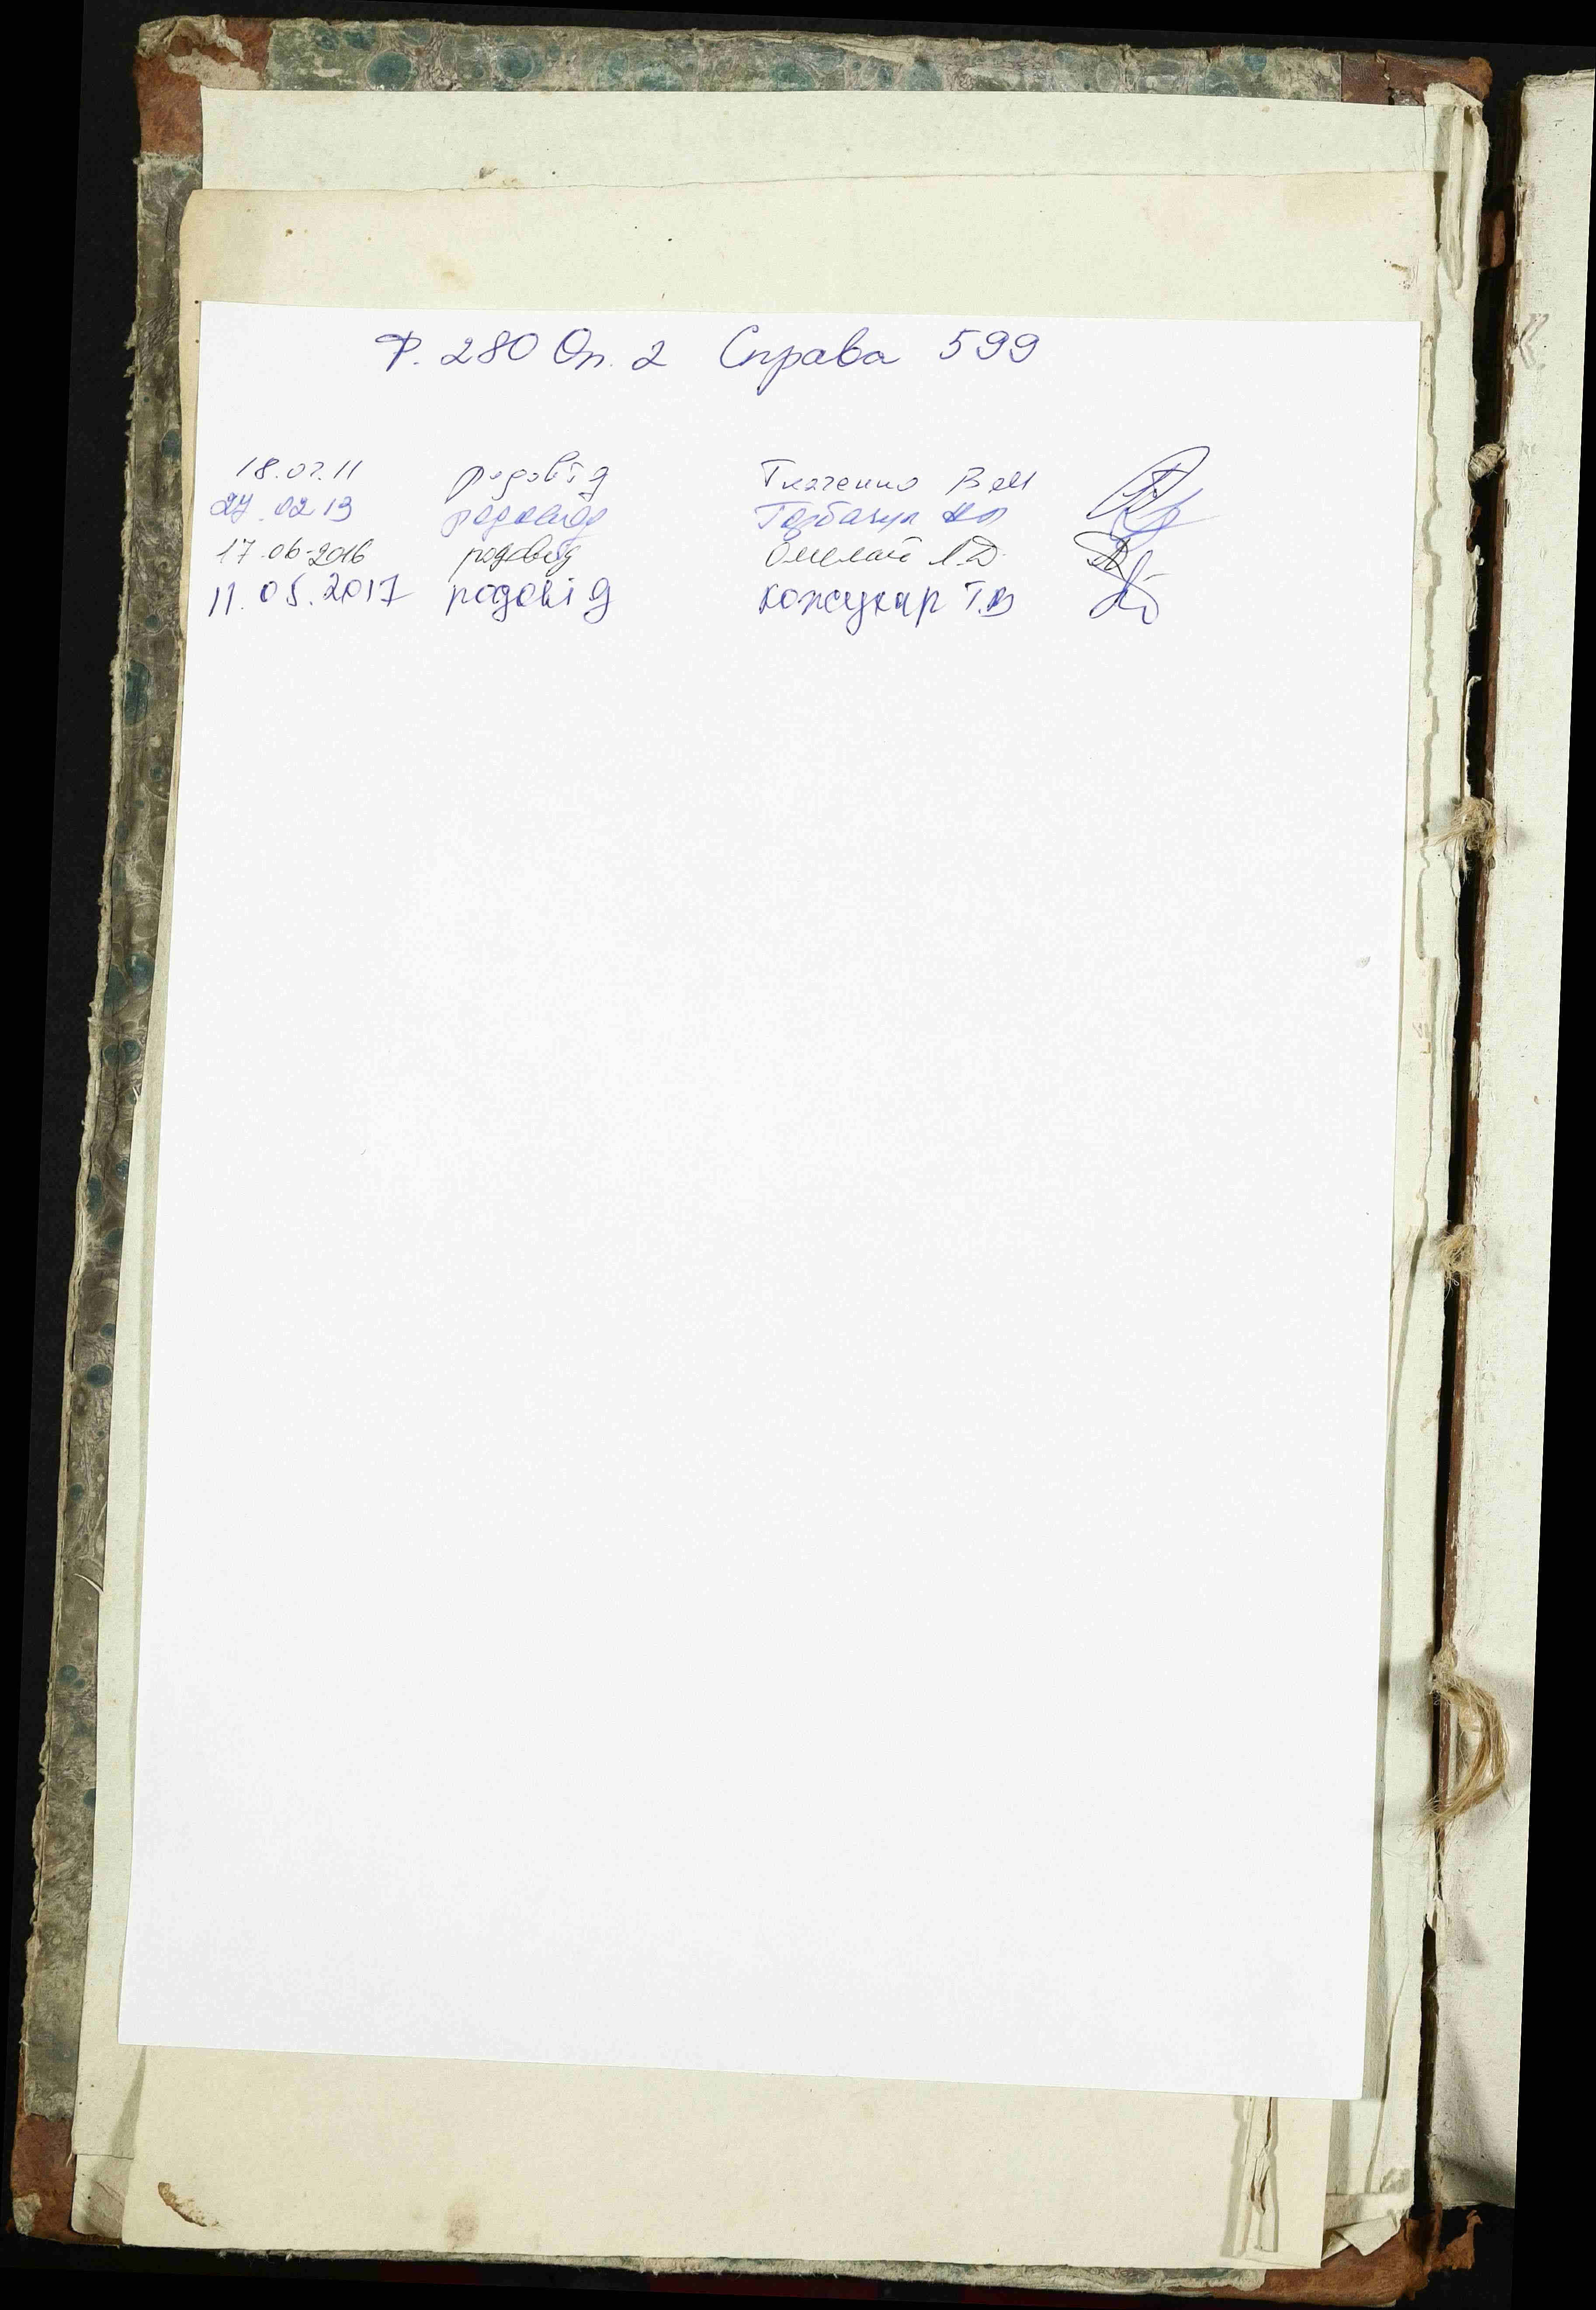 Ф. 280 Оп. 2 Справа 599
18.02.11 родовід Ткаченко В М
27.02 13 родовід
17.06.2016 родовід Омелай Л.Д.
11.05.2017 родовід Кожухар Т.В